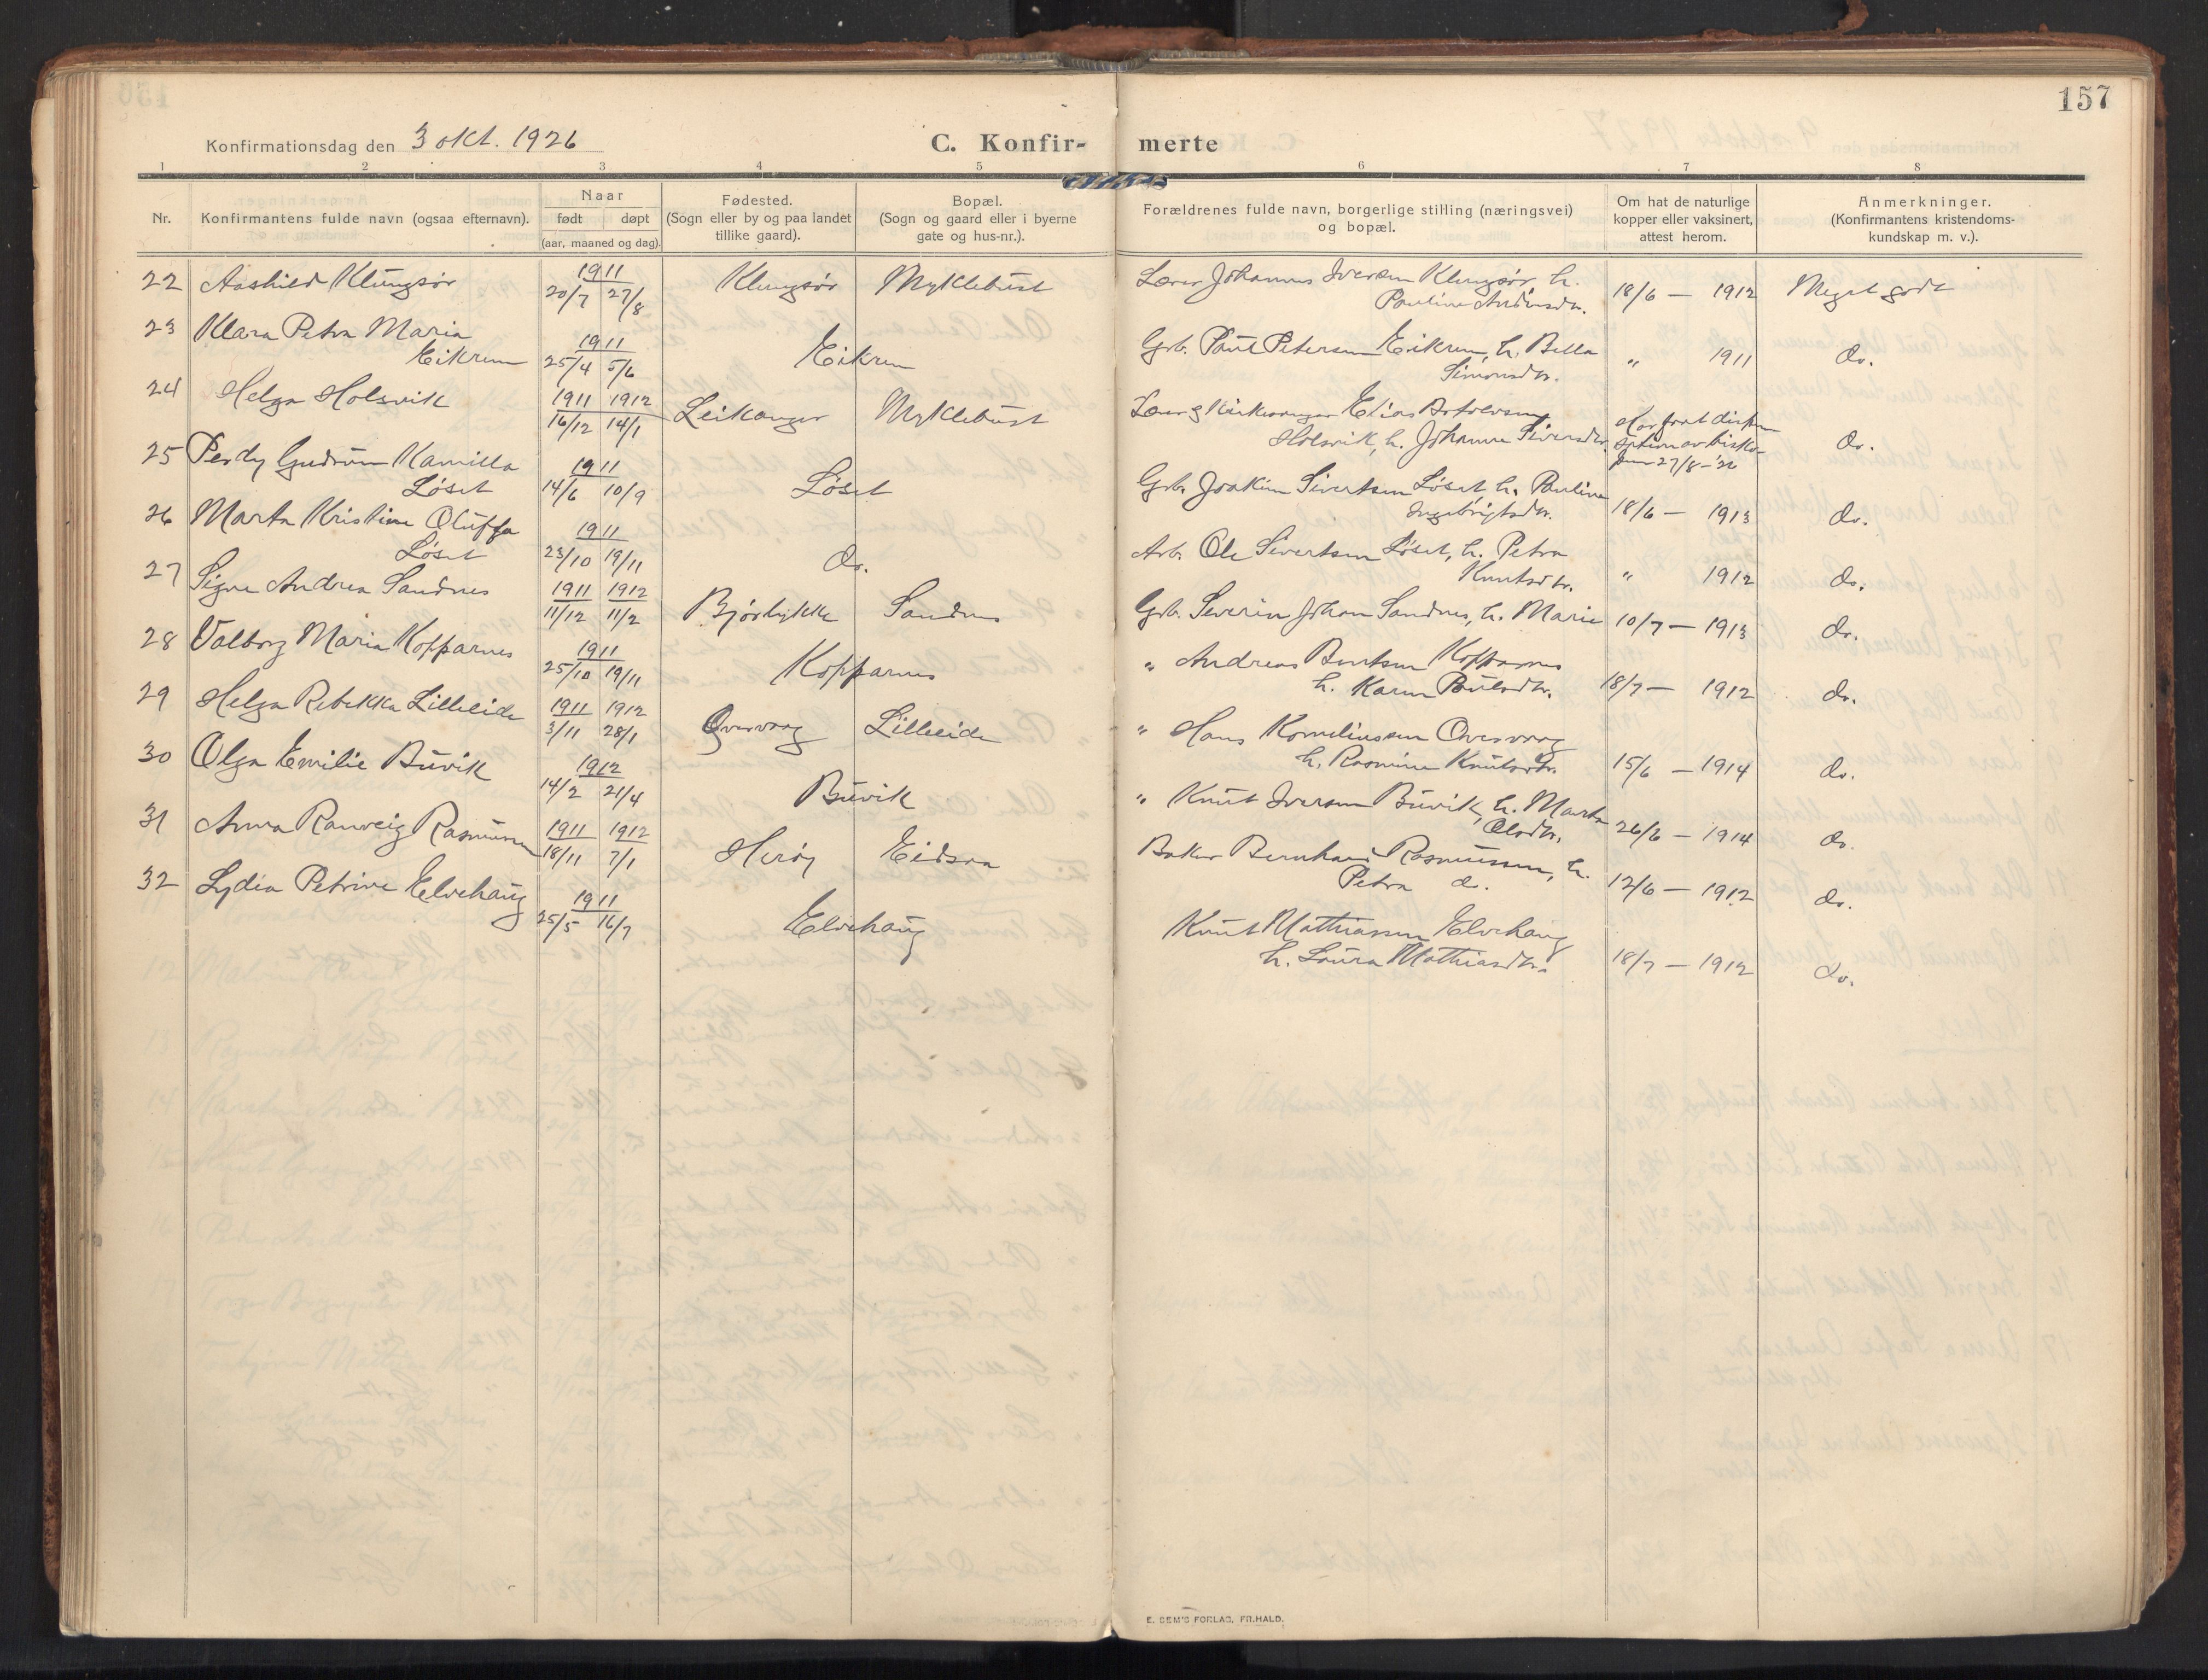 157
Konfirmationsdag den 3 okt. 1926
C. Konfir- merte
1 2 3 4 5 6 7 8
Nr.
Konfirmantens fulde navn (ogsaa efternavn).
Naar
født døpt
(aar, maaned og dag).
Fødested.
(Sogn eller by og paa landet
tillike gaard).
Bopæl.
(Sogn og gaard eller i byerne
gate og hus-nr.).
Forældrenes fulde navn, borgerlige stilling (næringsvei)
og bopæl.
Om hat de naturlige
kopper eller vaksinert,
attest herom.
Anmerkninger.
(Konfirmantens kristendoms-
kundskap m. v.).
22 Aashild Klungsør 1911 20/7 27/8 Klungsør Myklebust Lærer Johannes Iversen Klungsør, h.
Pauline Andersdtr. 18/6 — 1912 Meget godt
23 Klara Petra Maria
Eikrem 1911 25/4 5/6 Eikrem Grb. Paul Petersen Eikrem, h. Bella
Simonsdtr. " 1911 do.
24 Helga Holsvik 1911 1912 16/12 14/1 Leikanger Myklebust Lærer & Kirkesanger Elias
Holsvik, h. Johanne Siversdtr. Har faat dispen
sation av bisko-
pen 27/8-26 do.
25 Perdy Gudrun Kamilla
Løset 1911 14/6 10/9 Løset Grb. Joakim Sivertsen Løset, h. Pauline
Ingebrigtsdtr. 18/6 — 1913 do.
26 Marta Kristine Oluffa
Løset 1911 23/10 19/11 do. Arb. Ole Sivertsen Løset, h. Petra
Knutsdtr. " 1912 do.
27 Signe Andrea Sandnes 1911 1912 11/12 11/2 Bjørlykke Sandnes Grb. Severin Johan Sandnes, h. Marie 10/7 — 1913 do.
28 Valborg Maria Kopparnes 1911 25/10 19/11 Kopparnes " Andreas Berntsen Kopparnes
h. Karen Paulsdtr. 18/7 — 1912 do.
29 Helga Rebekka Lilleeide 1911 1912 3/11 28/1 Oversvog Lilleeide " Hans Korneliussen Oversvog
h. Rasmine Knutsdtr. 15/6 — 1914 do.
30 Olga Emilie Buvik 1912 14/2 21/4 Buvik " Knut Iversen Buvik, h. Marta
Olsdtr. 26/6 — 1914 do.
31 Anna Ranveig Rasmussen 1911 1912 18/11 7/1 Herøy Eidsaa Baker Bernhard Rasmussen, h.
Petra do. 12/6 — 1912 do.
32 Lydia Petrine Elvehaug 1911 25/5 16/7 Elvehaug Knut Mathiassen Elvehaug
h. Laura Mathiasdtr. 18/7 — 1912 do.
E. SEM'S FORLAG, FR.HALD.